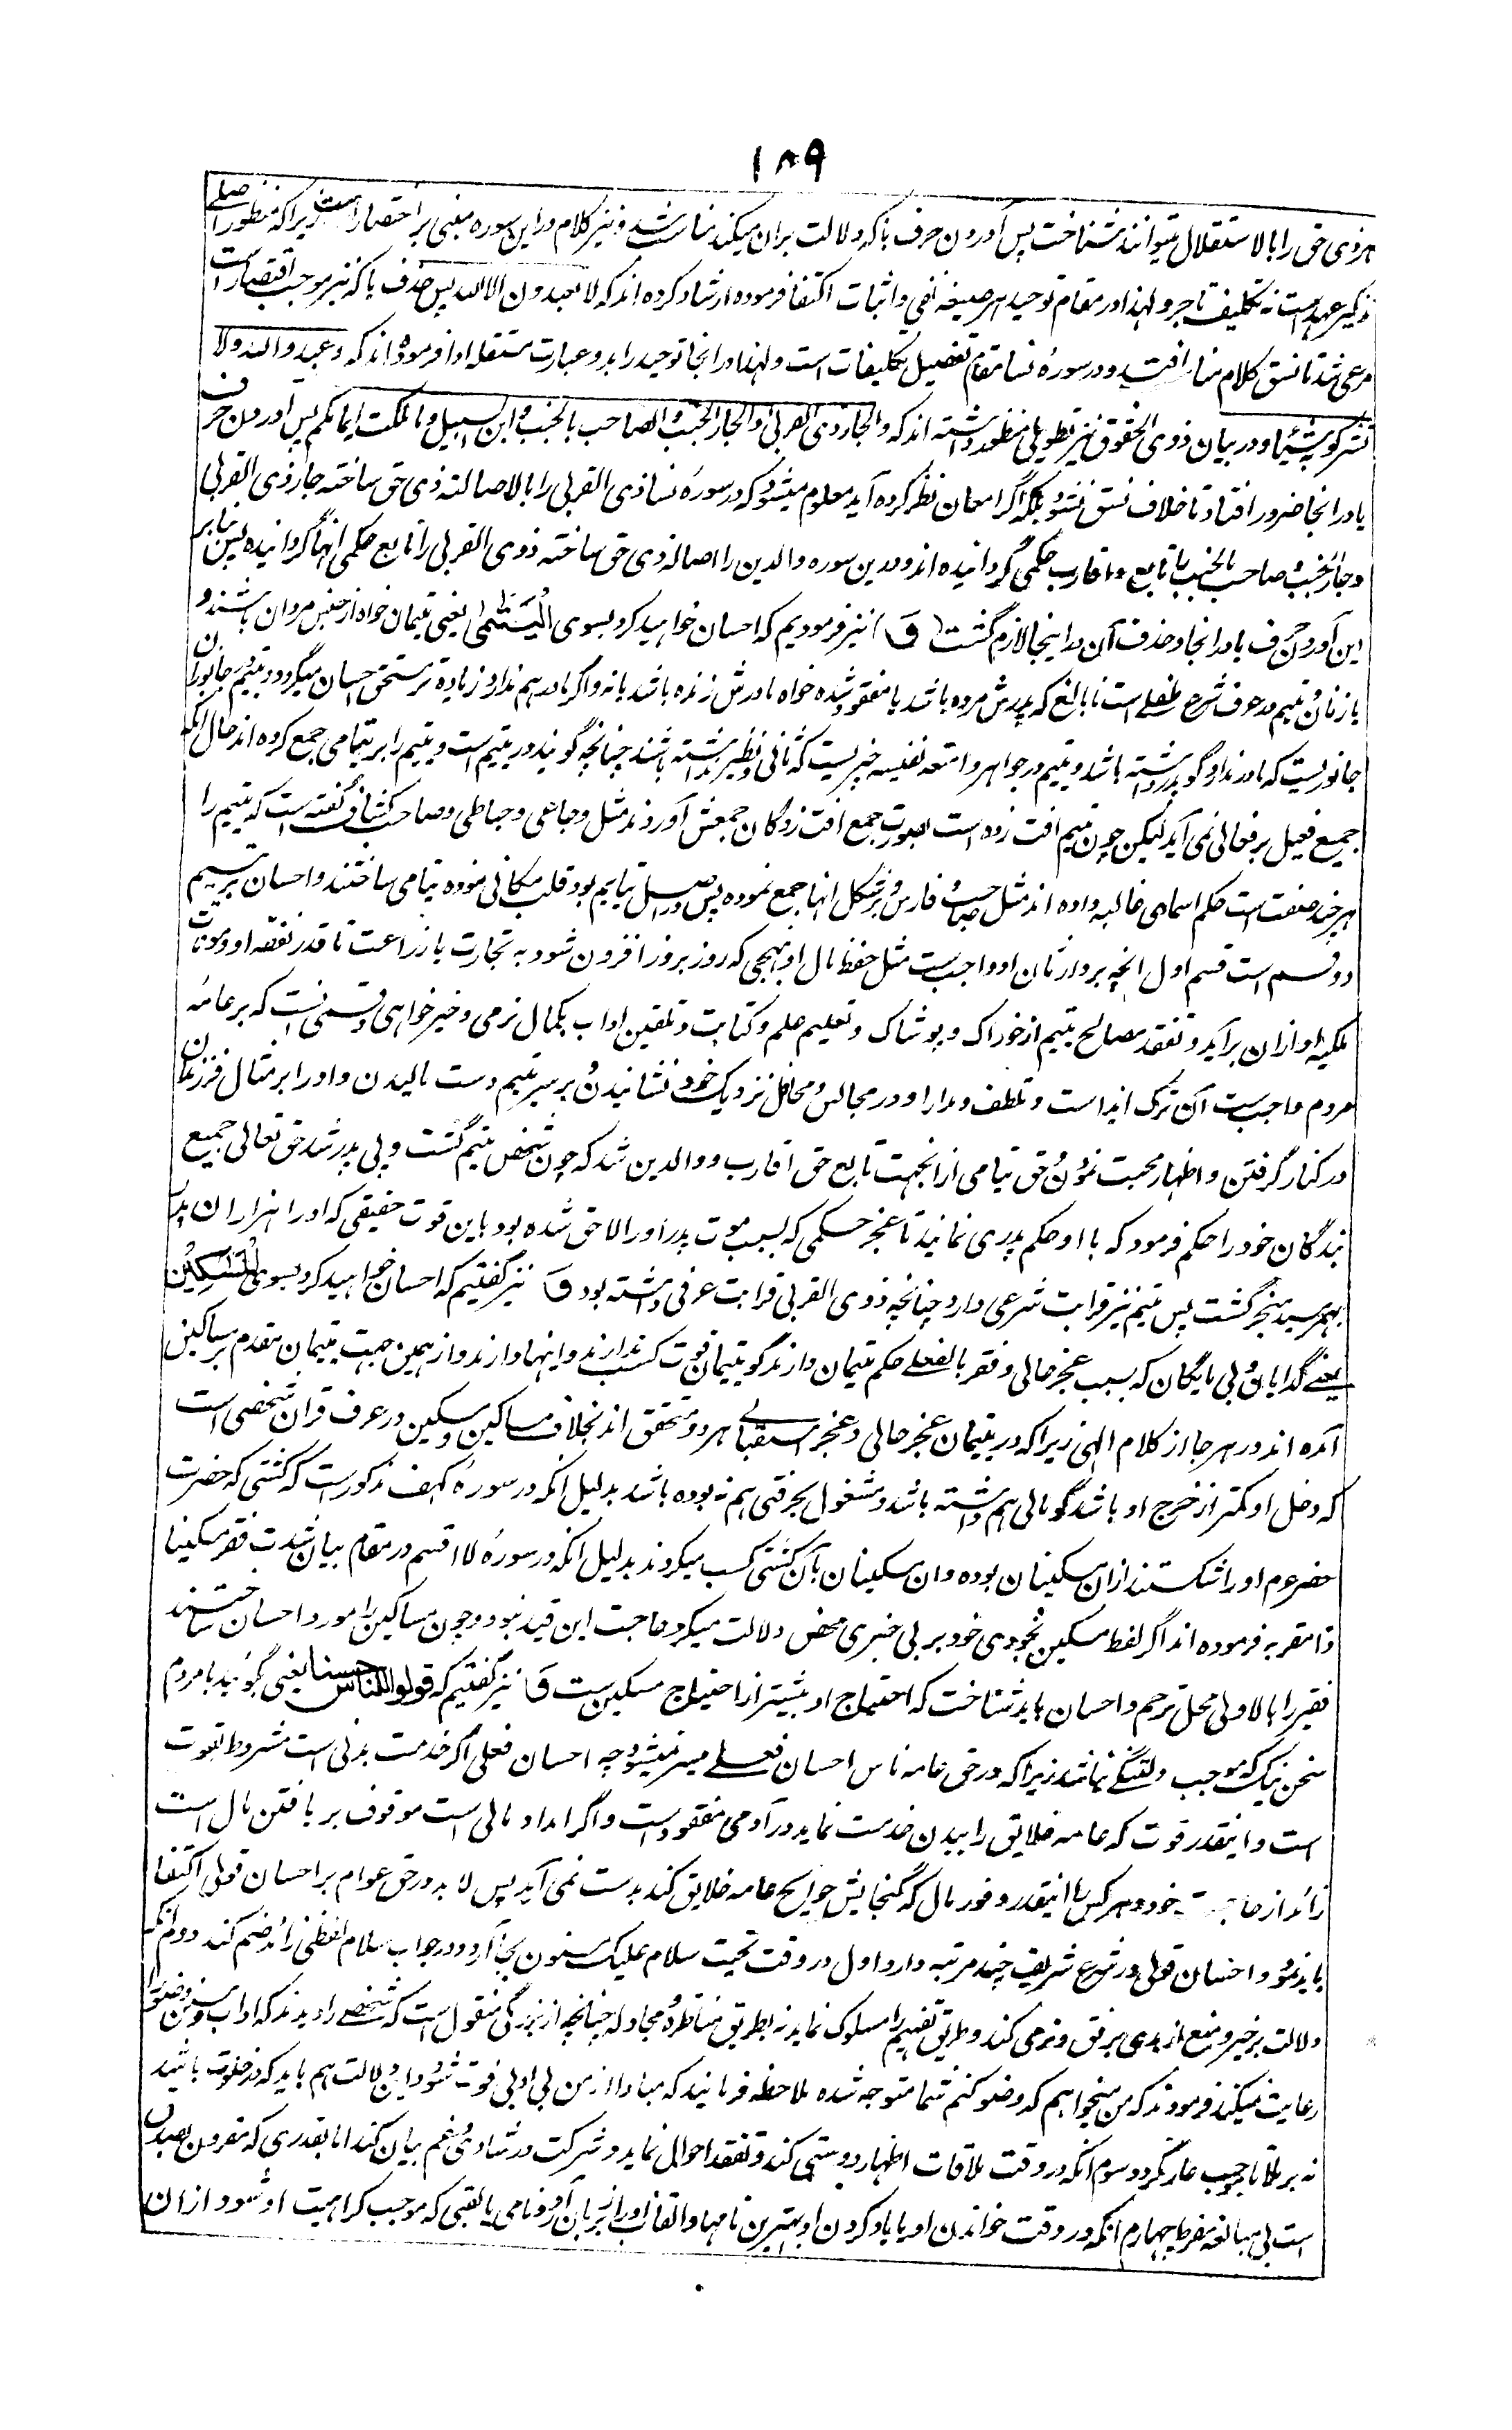 ۱۸۹
هر ذی حق را بالاستقلال میتوانند شناخت پس آوردن حرف با که دلالت بران میکند مناسب نشد و نیز کلام در این سوره مبنی بر اختصار است زیرا که منظور اصلی
تذکیر عهد است نه تکلیف تاجر و لهذا در مقام توحید هر صیغه نفی و اثبات اکتفا فرموده ارشاد کرده اند که لا تعبدون الا الله پس حذف با که نیز موجب اقتصار است
مرعی شد تا نسق کلام متناسب افتد و در سورۀ نسا مقام تفصیل تکلیفات است و لهذا در انجا توحید را بدو عبارت مستقله ادا فرموده اند که و اعبدوا الله ولا
تشرکوا به شیئا و در بیان ذوی الحقوق نیز تطویلی منظور داشته اند که و الجار ذی القربی و الجار الجنب و الصاحب بالجنب و ابن السبیل و ما ملکت ایمانکم پس آوردن حرف
با در انجا ضرور افتاد تا خلاف نسق نشود بلکه اگر امعان نظر کرده آید معلوم میشود که در سورۀ نسا ذی القربی را بالاصالته ذی حق ساخته جار ذی القربی
و جار جنب و صاحب بالجنب را تابع و اقارب حکمی گردانیده اند و درین سوره والدین را اصالة ذی حق ساخته ذوی القربی را تابع حکمی انها گردانیده پس بنابر
این آوردن حرف با در انجا و حذف آن در اینجا لازم گشت (وَ) نیز فرمودیم که احسان خواهید کرد بسوی الْیَتٰمٰی یعنی یتیمان خواه از جنس مردان باشند و
یا زنان و یتیم در عرف شرع طفلی است نابالغ که پدرش مرده باشد یا مفقود شده خواه مادرش زنده باشد یا نه و اگر مادر هم ندارد زیاده تر مستحق احسان میگردد و یتیم جانوران
جانوریست که مادر ندارد گو پدر داشته باشد و یتیم در جواهر و امتعه نفیسه چیزیست که ثانی و نظیر نداشته باشد چنانچه گویند در یتیم است و یتیم را بر یتامی جمع کرده اند حال آنکه
جمع فعیل بر فعالی نمی آید لیکن چون یتیم افت زده است بصورت جمع افت زدگان جمعش آوردند مثل وجاعی و حباطی و صاحب کشاف گفته است که یتیم را
هر چند صفت است حکم اسمای غالبه داده اند مثل صاحب و فارس و بر شکل انها جمع نموده پس در اصل یتایم بود قلب مکانی نموده یتامی ساختند و احسان بر یتیم
دو قسم است قسم اول انچه بر وارثان او واجب است مثل حفظ مال او بنهجی که روز بروز افزون شود به تجارت یا زراعت تا قدر نفقه او و مونات
ملکیه او ازان برآید و تفقد مصالح یتیم از خوراک و پوشاک و تعلیم علم و کتابت و تلقین اداب بکمال نرمی و خیرخواهی و قسمی است که بر عامۀ
مردم واجب است آن ترک ایذا است و تلطف و مدارا و در مجالس و محافل نزدیک خود نشانیدن و بر سر یتیم دست مالیدن و او را بر مثال فرزندان
در کنار گرفتن و اظهار محبت نمودن و حق یتامی از انجهت تابع حق اقارب و والدین شد که چون شخص یتیم گشت و بی پدر شد حق تعالی جمیع
بندگان خود را حکم فرمود که با او حکم پدری نمایند تا عجز حکمی که بسبب موت پدر او را لاحق شده بود باین قوت حقیقی که او را هزاران پدر
بهم رسید منجبر گشت پس یتیم نیز قرابت شرعی دارد چنانچه ذوی القربی قرابت عرفی داشته بود وَ نیز گفتیم که احسان خواهید کرد بسوی الْمَسٰکِیْنِ
یعنی گدایان و بی مایگان که بسبب عجز حالی و فقر بالفعل حکم یتیمان دارند گو یتیمان قوت کسب ندارند و اینها دارند و از همین جهت یتیمان مقدم بر مساکین
آمده اند در هر جا از کلام الهی زیرا که در یتیمان عجز حالی و عجز استقبالی هر دو متحقق اند بخلاف مساکین و مسکین در عرف قران شخصی است
که دخل او کمتر از خرج او باشد گو مالی هم داشته باشد و مشغول بحرفتی هم بوده باشد بدلیل آنکه در سورۀ کهف مذکور است که کشتی که حضرت
خضرعم او را شکستند ازان مسکینان بوده و ان مسکینان بآن کشتی کسب میکردند بدلیل آنکه در سورۀ لا اقسم در مقام بیان شدت فقر مسکینا
ذا متربه فرموده اند اگر لفظ مسکین بخودی خود بر بی خبری محض دلالت میکرد حاجت این قید نبود و چون مساکین را مورد احسان ساختند
فقیر را بالاولی محل ترحم و احسان باید شناخت که احتیاج او بیشتر از احتیاج مسکین ست وَ نیز گفتیم که قولوا للناس حسنا یعنی بگوئید با مردم
سخن نیک که موجب دلتنگی نباشد زیرا که در حق عامه ناس احسان فعلی میسر نمیشود چه احسان فعلی اگر خدمت بدنی است مشروط بقوت
است و اینقدر قوت که عامه خلایق را ببدن خدمت نماید در آدمی مفقود است و اگر امداد مالی است موقوف بر یافتن مال است
زائد از حاجت خود و هر کس را اینقدر وفور مال که گنجایش حوایج عامه خلایق کند بدست نمی آید پس لابد در حق عوام بر احسان قولی اکتفا
باید نمود و احسان قولی در شرع شریف چند مرتبه دارد اول در وقت تحیت سلام علیک مسنون بجا آرد و در جواب سلام لفظی زائد ضم کند دوم آنکه
دلالت بر خیر و منع از بدی برفق و نرمی کند و طریق تفهیم را مسلوک نماید نه بطریق مناظره و مجادله چنانچه از بزرگی منقول است که شخصی را دیدند که اداب و سنن وضو را
رعایت نمیکند فرمودند که من میخواهم که وضو کنم شما متوجه شده ملاحظه فرمائید که مبادا از من بی ادبی فوت شود و این دلالت هم باید که در خلوت باشد
نه بر ملا تا موجب عار نگردد سوم آنکه در وقت ملاقات اظهار دوستی کند و تفقد احوال نماید و شرکت در شادی و غم بیان کند اما بقدری که مقرون بصدق
است بی مبالغه مفرط چهارم آنکه در وقت خواندن او یا یاد کردن او بهترین نامها و القاب او را بر زبان آرد و نامی یا لقبی که موجب کراهیت او شود ازان